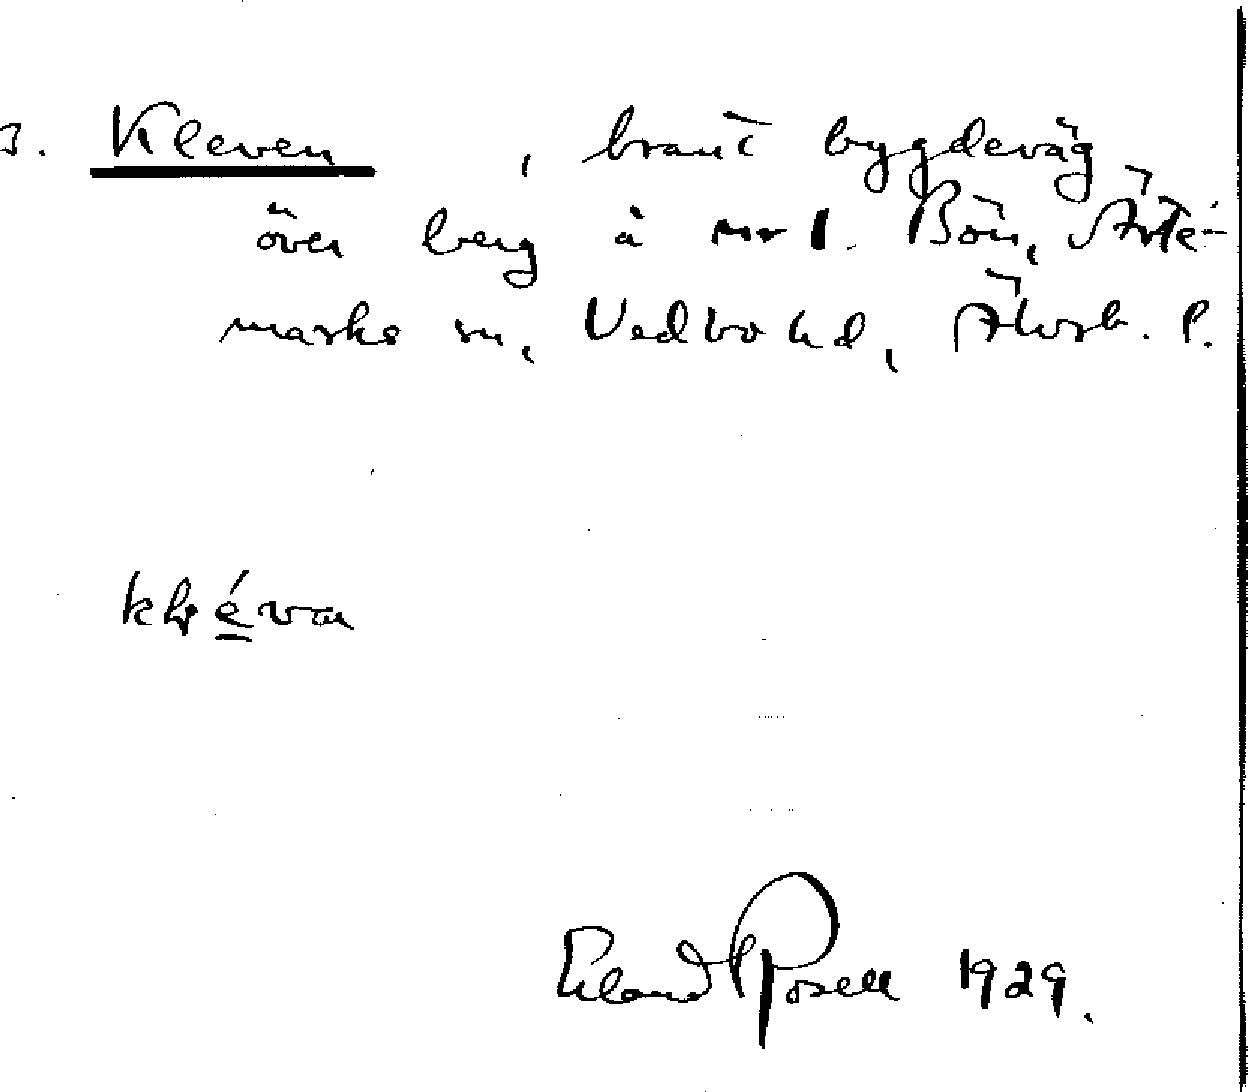 3. Kleven, brant bygdeväg
över berg å nr 1. Bön, Ärte-
marks sn, Vedbo hd, Älvsb. l.
Erland Rosell 1929.